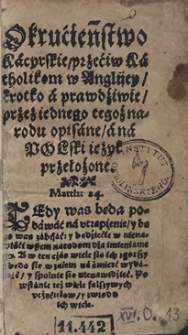 Okrucieństwo
Kácyrskie/przećiw Ká
tholikom w Angliiey/
krotko á prawdźiwie/
przez iednego tegoż na
rodu opisáne/ á ná
POLski ięzyk
przełożone.
Matth: 24.
TEdy was będą po
dáwáć ná vtrapienie/ y bę
dą was zábijáć: y będźiećie w niená
wiśći wszem narodom dla imieniá me
go. A w ten czás wiele sie ich zgorszy
będą sie wzáiem ná śmierć wydá-
wáć/ y społnie sie nienawidźieć. Po
wstánie też wiele fałszywych
ych wiele.
INSTYTUT
XVI. O. 13
11.442